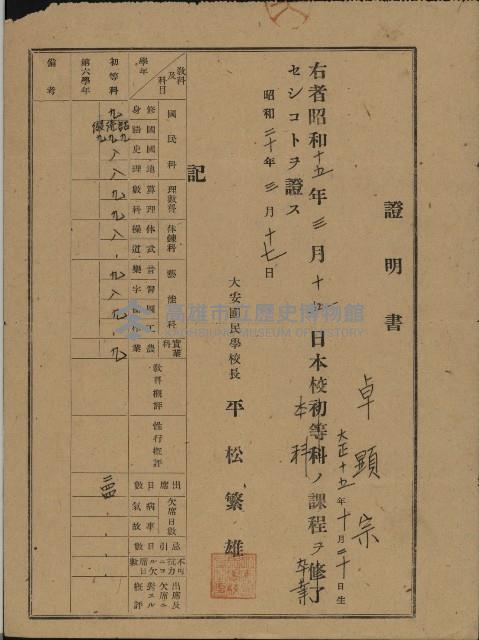 證明書
卓顯宗
大正十五年十月二十日生
右者昭和十五年三月十七日本校初等科ノ課程ヲ修了
本科
卒業
セシコトヲ證ス
昭和二十年三月十七日
大安國民學校長 平松繁雄
記
教科及科目
學年
初等科
第六學年
備考
國民科
修身
國語
國史
地理
九
八
八
理數科
算數
理科
九
九
体鍊科
体操
武道
八
藝能科
音樂
習字
圖畫
工作
九
八
九
實業科
農業
九
教科概評
性行概評
出席日數
欠席日數
病氣
事故
忌引日數
出席及欠席ニ對スル概評
高雄市立歷史博物館
KAOHSIUNG MUSEUM OF HISTORY